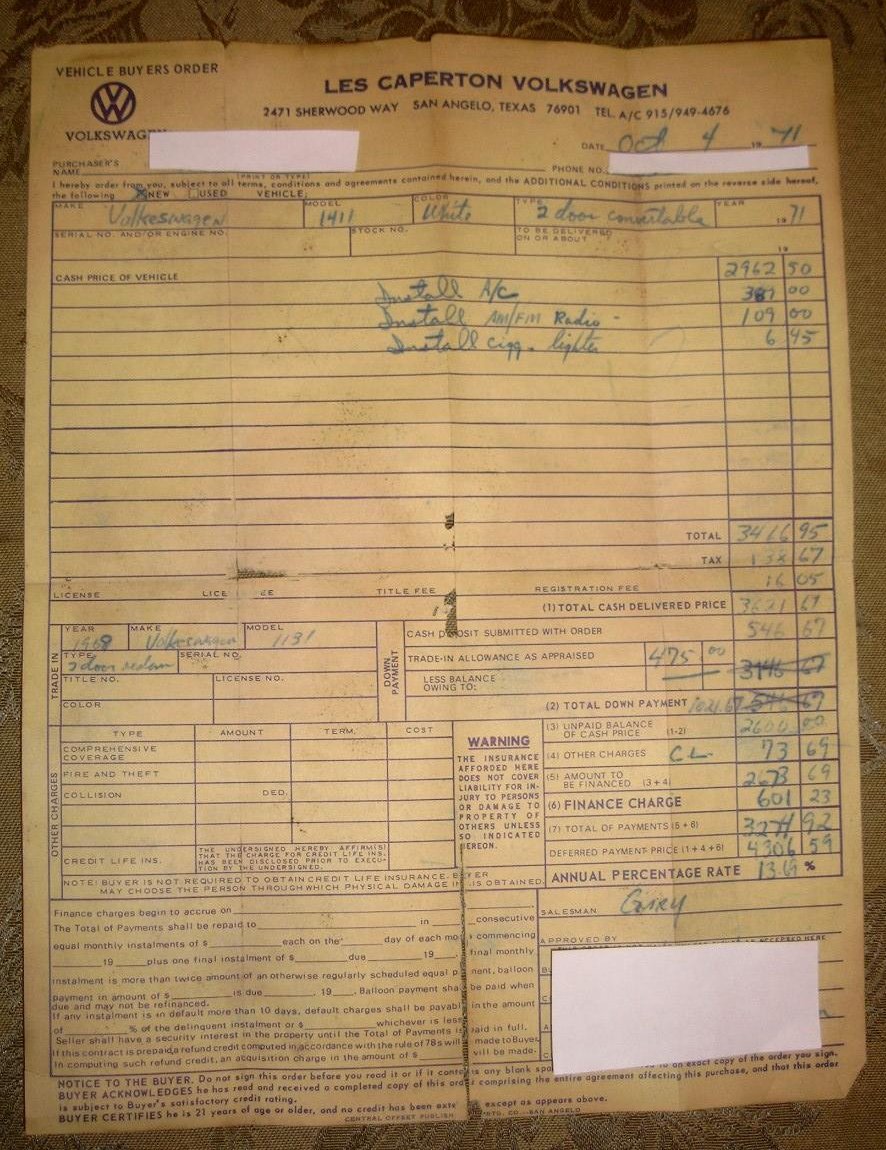 VEHICLE BUYERS ORDER
LES CAPERTON VOLKSWAGEN
2471 SHERWOOD WAY SAN ANGELO, TEXAS 76901 TEL. A/C 915/949-4676
VOLKSWAGEN
DATE Oct 4 1971
PURCHASER'S NAME
(PRINT OR TYPE)
PHONE NO.
I hereby order from you, subject to all terms, conditions and agreements contained herein, and the ADDITIONAL CONDITIONS printed on the reverse side hereof,
the following NEW USED VEHICLE:
MAKE MODEL COLOR TYPE YEAR
Volkeswagen 1411 White 2 door convertable 1971
SERIAL NO. AND/OR ENGINE NO. STOCK NO. TO BE DELIVERED ON OR ABOUT 19
CASH PRICE OF VEHICLE 2962 50
Install A/C 00
Install AM/FM Radio - 109 00
Install cigg. lighter 6 45
TOTAL 3466 95
TAX 67
16 05
LICENSE TITLE FEE REGISTRATION FEE
(1) TOTAL CASH DELIVERED PRICE 3621 67
TRADE IN
YEAR MAKE MODEL
1968 Volkeswagen 1131
TYPE SERIAL NO.
2 door sedan
TITLE NO. LICENSE NO.
COLOR
DOWN PAYMENT
CASH DEPOSIT SUBMITTED WITH ORDER 546 67
TRADE-IN ALLOWANCE AS APPRAISED 475 00
LESS BALANCE OWING TO: 3146 67
(2) TOTAL DOWN PAYMENT 1021.67 546 67
OTHER CHARGES
TYPE AMOUNT TERM. COST
COMPREHENSIVE COVERAGE
FIRE AND THEFT
COLLISION DED.
CREDIT LIFE INS.
THE UNDERSIGNED HEREBY AFFIRM(S)
THAT THE CHARGE FOR CREDIT LIFE INS.
HAS BEEN DISCLOSED PRIOR TO EXECU-
TION BY THE UNDERSIGNED.
NOTE: BUYER IS NOT REQUIRED TO OBTAIN CREDIT LIFE INSURANCE. BUYER
MAY CHOOSE THE PERSON THROUGH WHICH PHYSICAL DAMAGE IN IS OBTAINED.
WARNING
THE INSURANCE
AFFORDED HERE
DOES NOT COVER
LIABILITY FOR IN-
JURY TO PERSONS
OR DAMAGE TO
PROPERTY OF
OTHERS UNLESS
SO INDICATED
HEREON.
(3) UNPAID BALANCE OF CASH PRICE (1-2) 2600 00
(4) OTHER CHARGES C L. 73 69
(5) AMOUNT TO BE FINANCED (3+4) 2673 69
(6) FINANCE CHARGE 601 23
(7) TOTAL OF PAYMENTS (5+6) 3274 92
DEFERRED PAYMENT PRICE (1+4+6) 4306 59
ANNUAL PERCENTAGE RATE 13.69 %
SALESMAN Gary
APPROVED BY
Finance charges begin to accrue on
The Total of Payments shall be repaid to in consecutive
equal monthly instalments of $ each on the day of each mo commencing
19 plus one final instalment of $ due 19 . final monthly
instalment is more than twice amount of an otherwise regularly scheduled equal p nent, balloon
payment in amount of $ is due , 19 . Balloon payment sha be paid when
due and may not be refinanced.
If any instalment is in default more than 10 days, default charges shall be payabl in the amount
of % of the delinquent instalment or $ whichever is less
Seller shall have a security interest in the property until the Total of Payments is paid in full.
If this contract is prepaid, a refund credit computed in accordance with the rule of 78s will made to Buyer
In computing such refund credit, an acquisition charge in the amount of $ will be made.
NOTICE TO THE BUYER. Do not sign this order before you read it or if it contains any blank spa to an exact copy of the order you sign.
BUYER ACKNOWLEDGES he has read and received a completed copy of this order comprising the entire agreement affecting this purchase, and that this order
is subject to Buyer's satisfactory credit rating.
BUYER CERTIFIES he is 21 years of age or older, and no credit has been exte except as appears above.
CENTRAL OFFSET PUBLISH NTG. CO. - SAN ANGELO